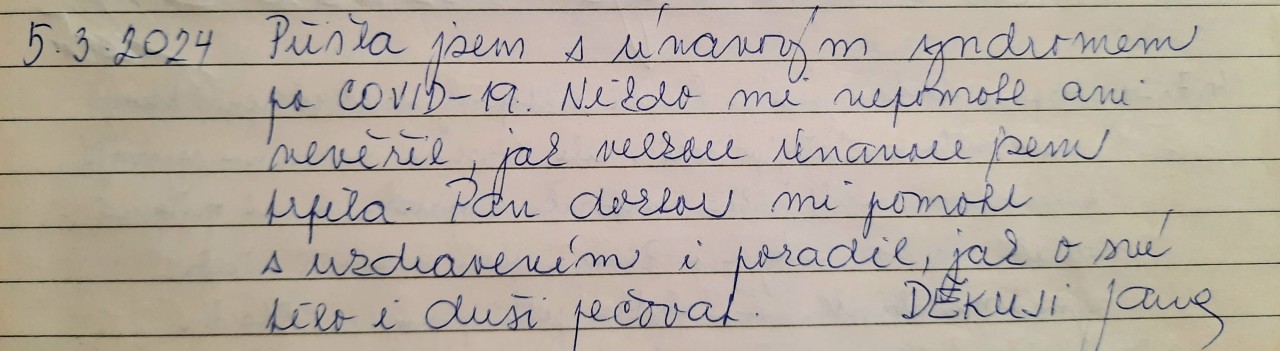 5.3.2024 Přišla jsem s únavovým syndromem
po COVID-19. Nikdo mi nepomohl ani
nevěřil, jak velkou únavou jsem
trpěla. Pan doktor mi pomohl
s uzdravením i poradil, jak o své
tělo i duši pečovat. DĚKUJI Jana